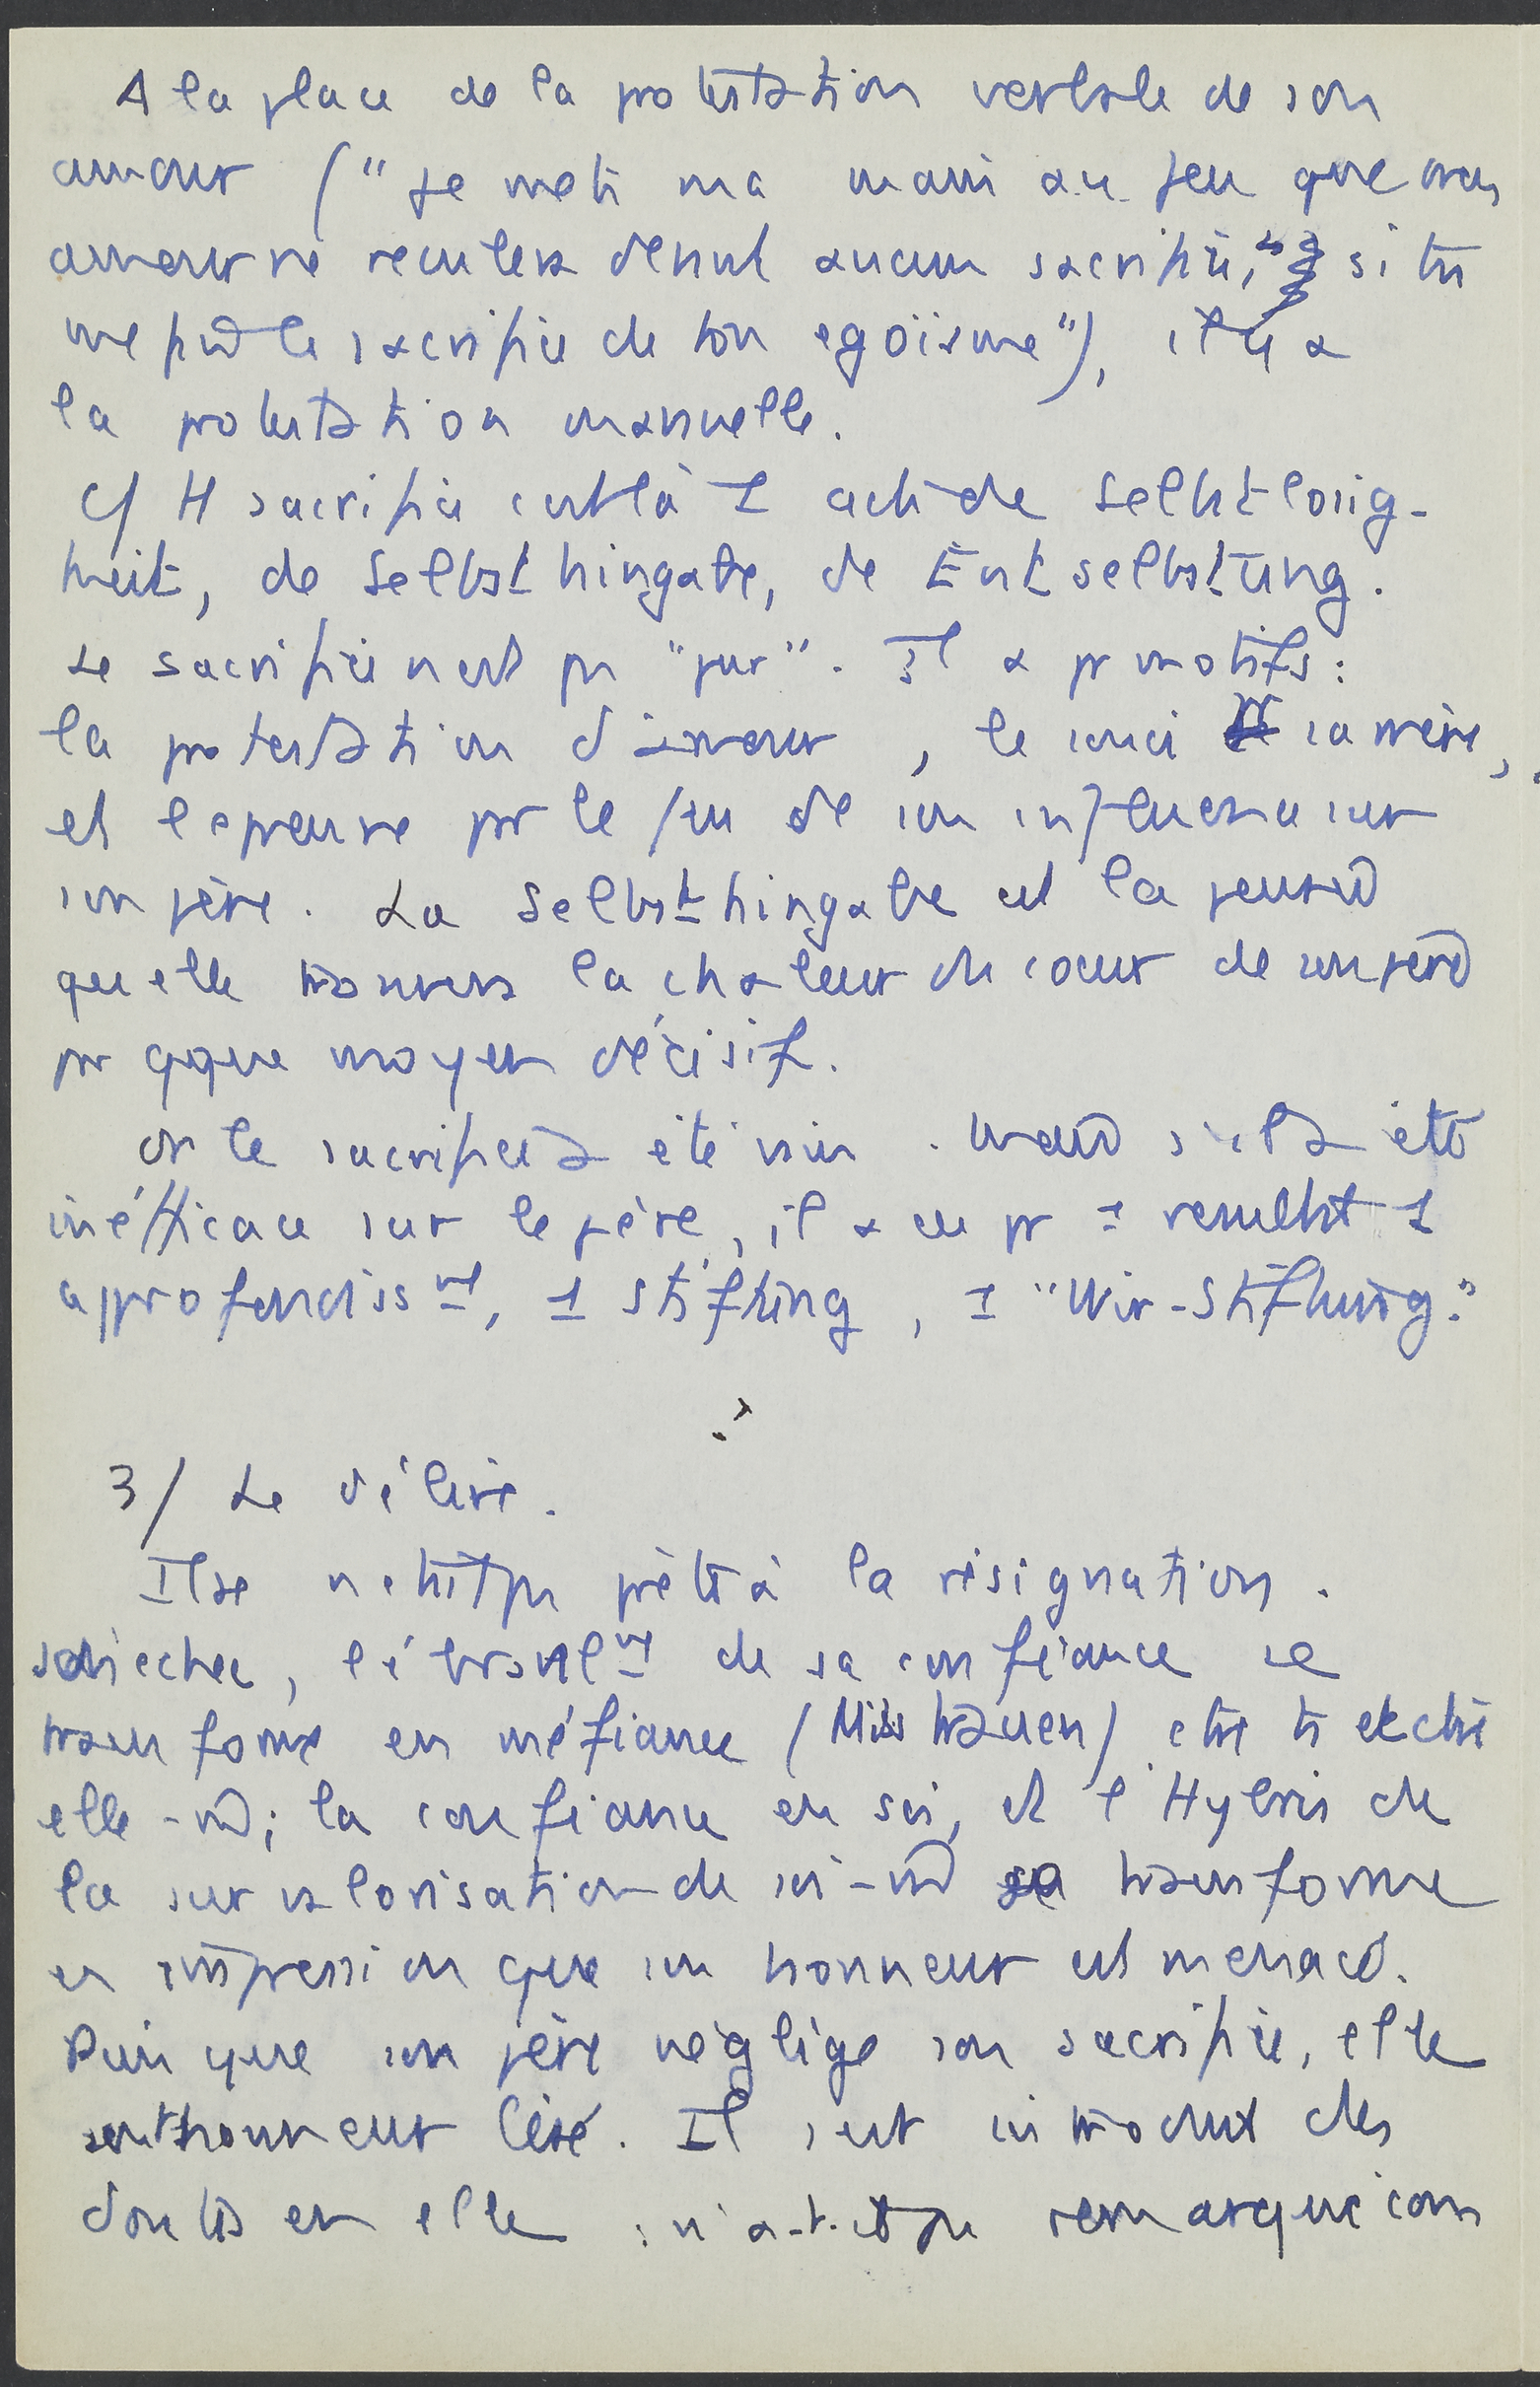 A la place de la protestation verbale de son
amour ("Je mets ma main au feu que mon
amour ne reculera devant aucun sacrifice, si tu
me fais le sacrifice de ton egoïsme"), il y a
la protestation manuelle.
c/ H sacrifice est là 1 acte de Selbstlosig-
keit, de Selbsthingabe, de Entselbstung.
Le sacrifice n'est pas "pur". Il a pr motifs :
la protestation d'amour, le souci de sa mère,
et l'epreuve pr le feu de son influence sur
son père. La Selbsthingabe est la pensée
qu'elle trouvera la chaleur du coeur de son père
pr qque moyen décisif.
Or le sacrifice a été vain. Même s'il a été
inéfficace sur le père, il a eu pr resultat 1
approfondissmt, 1 Stiftung, 1 "Wir-Stiftung."
3/ Le délire.
Ilse n'était pas prête à la résignation.
Son echec, l'ébranlmt de sa confiance se
transforme en méfiance (Misstrauen)
elle-m̂; la confiance en soi, et l'Hybris de
la survalorisation de soi-m̂ se transforme
en impression que son honneur est menacé.
Puisque son père néglige son sacrifice, elle
sent honneur lésé. Il s'est introduit des
doutes en elle : n'a-t-elle pas remarqué